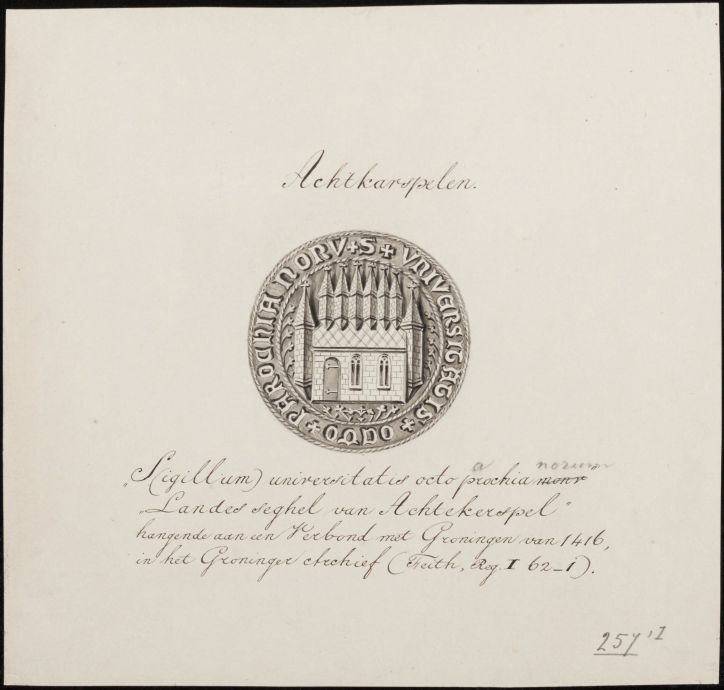 Achtkarspelen.
+ S + VNIVERSITATIS + OCTO + PAROCHIANORV
„S(igillum) universitatis octo parochia norum
„Landes seghel van Achtekerspel"
hangende aan een Verbond met Groningen van 1416,
in het Groninger Archief (Feith, Reg. I 62_1).
257'I